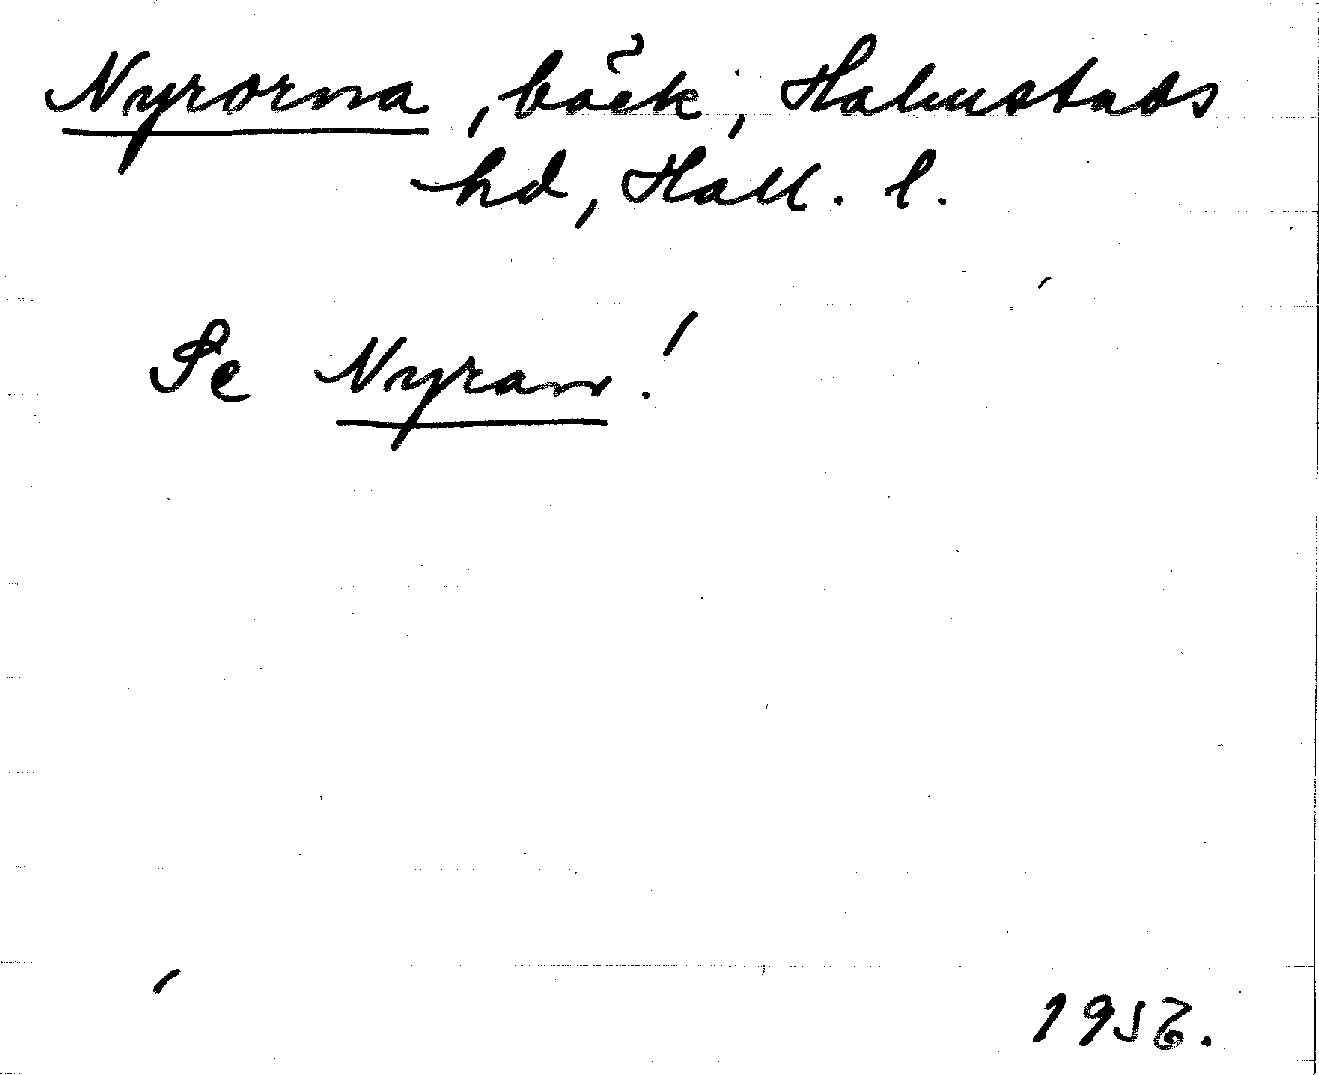 Nyrorna, bäck, Halmstads
hd, Hall. l.
Se Nyran!
1956.